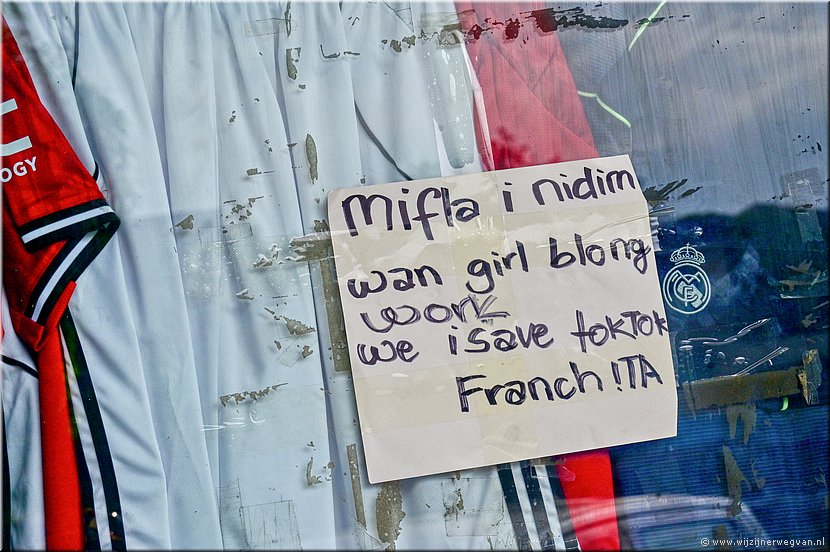 OGY
mifla i nidim
wan girl blong
work
we i save tokTok
Franch!TA
© www.wijzijnerwegvan.nl